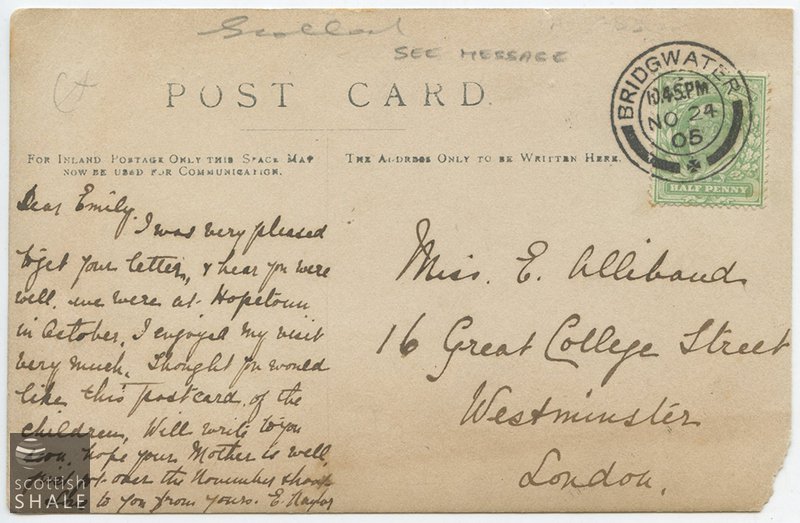 Scotland
SEE MESSAGE
POST CARD
BRIDGWATER
10.45PM
NO 24
05
HALF PENNY
FOR INLAND POSTAGE ONLY THIS SPACE MAY
NOW BE USED FOR COMMUNICATION.
THE ADDRESS ONLY TO BE WRITTEN HERE.
Dear Emily.
I was very pleased
to get your letter, & hear you were
well. we were at Hopetoun
in October. I enjoyed my visit
very much. Thought you would
like this postcard of the
children. Will write to you
soon, hope your Mother is well
over the November
to you from yours. E. Naylor
Miss. E. Alliband
16 Great College Street
Westminster
London.
scottish
SHALE